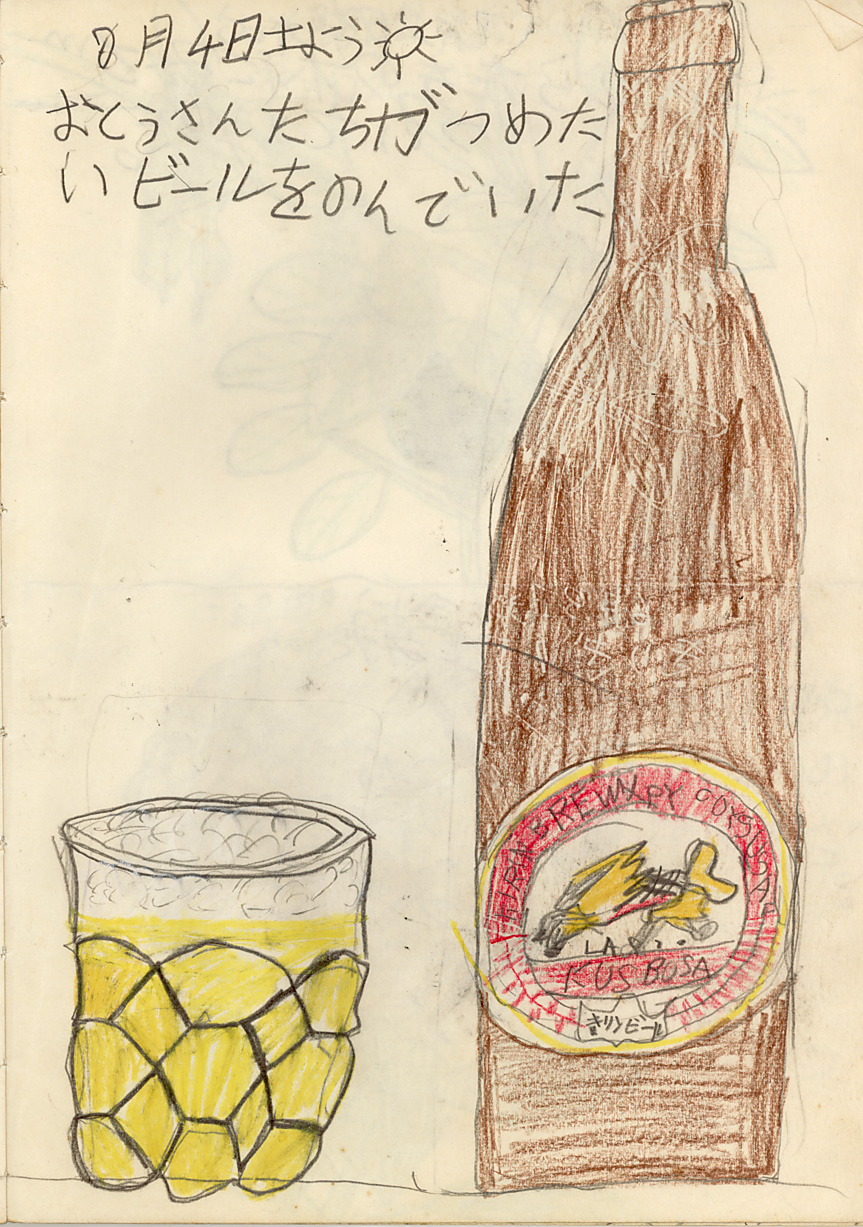 8月4日土よう
おとうさんたちがつめた
いビールをのんでいた
KUS BOSA
きリンビール